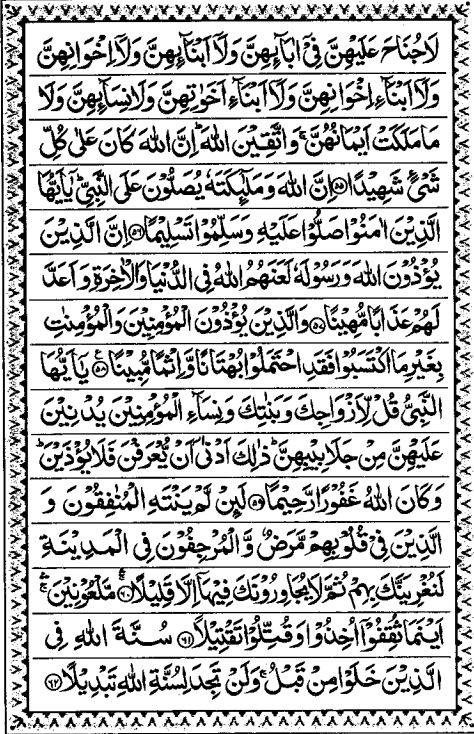 لَاجُنَاحَ عَلَيْهِنَّ فِيْٓ اٰبَآئِهِنَّ وَلَآ اَبْنَآئِهِنَّ وَلَآ اِخْوَانِهِنَّ
وَلَآ اَبْنَآءِ اِخْوَانِهِنَّ وَلَآ اَبْنَآءِ اَخَوٰتِهِنَّ وَلَا نِسَآئِهِنَّ وَلَا
مَا مَلَكَتْ اَيْمَانُهُنَّ ۚ وَاتَّقِيْنَ اللّٰهَ ؕ اِنَّ اللّٰهَ كَانَ عَلٰى كُلِّ
شَيْءٍ شَهِيْدًا ﴿۵۵﴾ اِنَّ اللّٰهَ وَمَلٰٓئِكَتَهٗ يُصَلُّوْنَ عَلَى النَّبِيِّ ؕ يٰٓاَيُّهَا
الَّذِيْنَ اٰمَنُوْا صَلُّوْا عَلَيْهِ وَسَلِّمُوْا تَسْلِيْمًا ﴿۵۶﴾ اِنَّ الَّذِيْنَ
يُؤْذُوْنَ اللّٰهَ وَرَسُوْلَهٗ لَعَنَهُمُ اللّٰهُ فِي الدُّنْيَا وَالْاٰخِرَةِ وَاَعَدَّ
لَهُمْ عَذَابًا مُّهِيْنًا ﴿۵۷﴾ وَالَّذِيْنَ يُؤْذُوْنَ الْمُؤْمِنِيْنَ وَالْمُؤْمِنٰتِ
بِغَيْرِ مَا اكْتَسَبُوْا فَقَدِ احْتَمَلُوْا بُهْتَانًا وَّاِثْمًا مُّبِيْنًا ﴿۵۸﴾ يٰٓاَيُّهَا
النَّبِيُّ قُلْ لِّاَزْوَاجِكَ وَبَنٰتِكَ وَنِسَآءِ الْمُؤْمِنِيْنَ يُدْنِيْنَ
عَلَيْهِنَّ مِنْ جَلَابِيْبِهِنَّ ؕ ذٰلِكَ اَدْنٰٓى اَنْ يُّعْرَفْنَ فَلَا يُؤْذَيْنَ ؕ
وَكَانَ اللّٰهُ غَفُوْرًا رَّحِيْمًا ﴿۵۹﴾ لَئِنْ لَّمْ يَنْتَهِ الْمُنٰفِقُوْنَ وَ
الَّذِيْنَ فِيْ قُلُوْبِهِمْ مَّرَضٌ وَّالْمُرْجِفُوْنَ فِي الْمَدِيْنَةِ
لَنُغْرِيَنَّكَ بِهِمْ ثُمَّ لَا يُجَاوِرُوْنَكَ فِيْهَآ اِلَّا قَلِيْلًا ﴿۶۰﴾ مَّلْعُوْنِيْنَ ۛ
اَيْنَمَا ثُقِفُوْٓا اُخِذُوْا وَقُتِّلُوْا تَقْتِيْلًا ﴿۶۱﴾ سُنَّةَ اللّٰهِ فِي
الَّذِيْنَ خَلَوْا مِنْ قَبْلُ ۚ وَلَنْ تَجِدَ لِسُنَّةِ اللّٰهِ تَبْدِيْلًا ﴿۶۲﴾